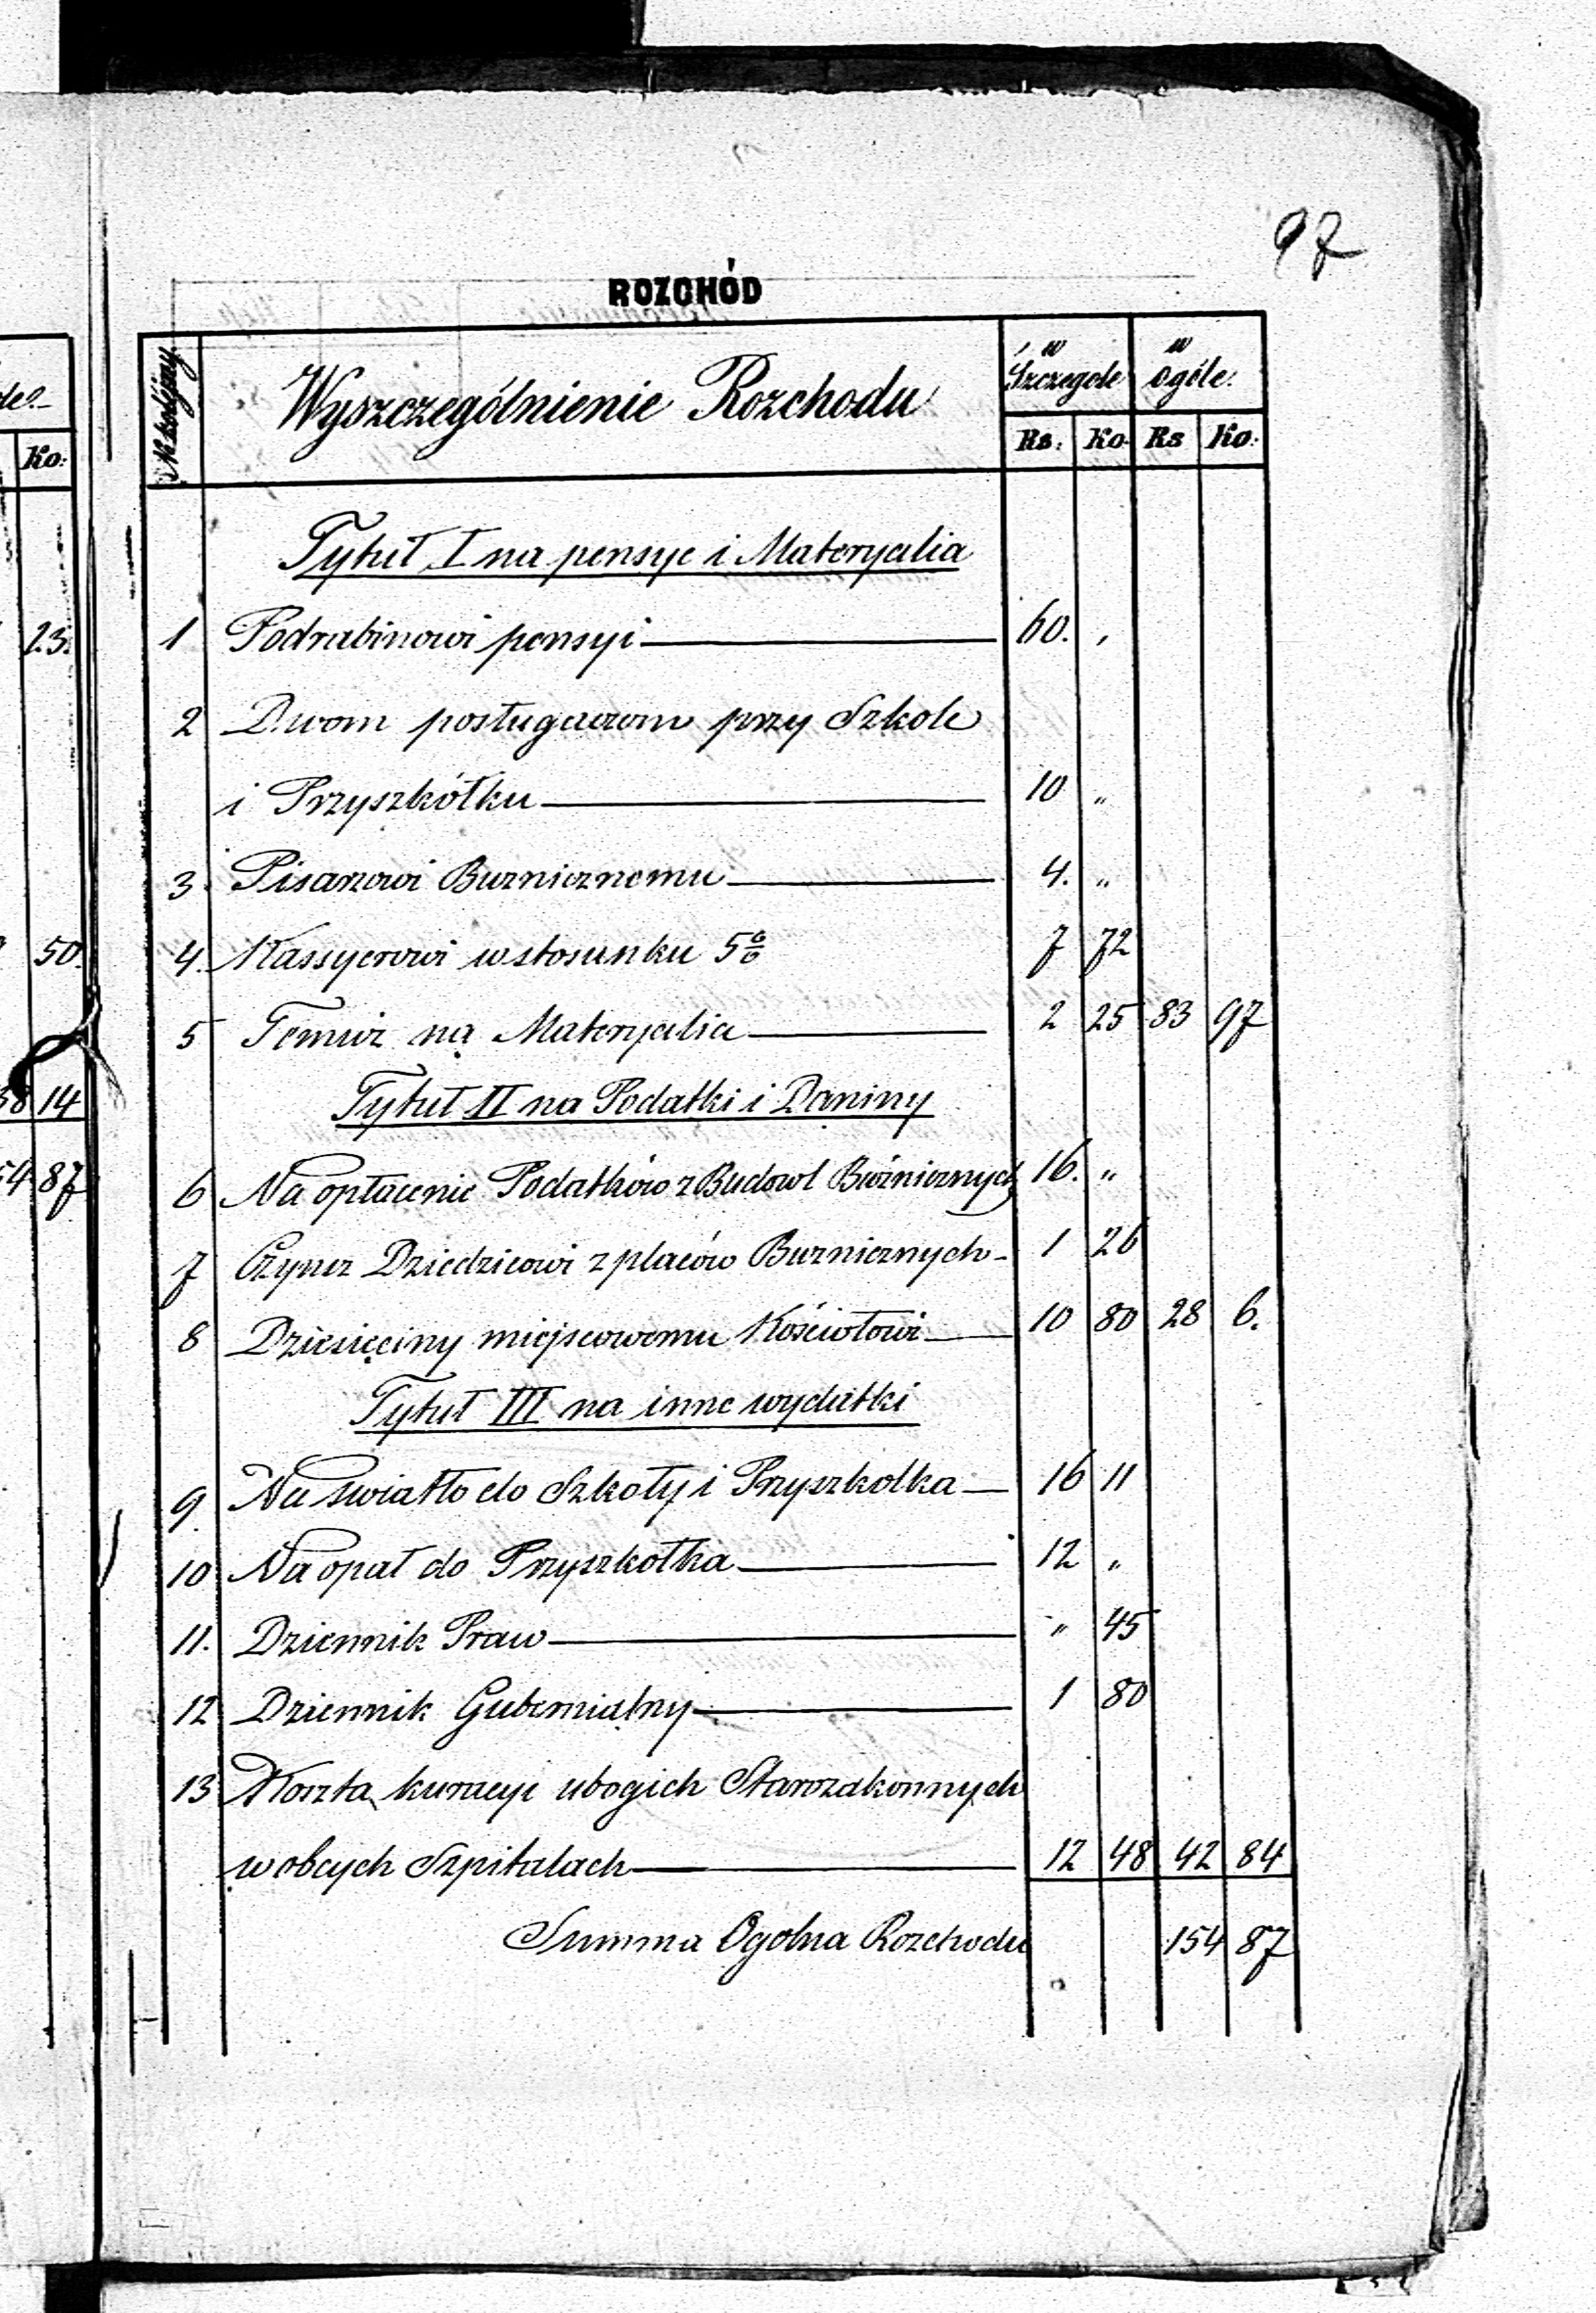 97
ROZCHÓD
№ kolejny. Wyszczególnienie Rozchodu w Szczegole w ogóle.
Ko: Rs: Ko. Rs Ko:
Tytuł I na pensye i Materyalia
23. 1 Podrabinowi pensyi 60. "
2 Dwom posługaczom przy Szkole
i Przyszkółku 10 "
3. Pisarzowi Buznicznemu 4. "
50. 4. Kassyerowi w stosunku 5% 7 72
5 Temuż na Materyalia 2 25 83 97
14 Tytuł II na Podatki i Daniny
87 6 Na opłacenie Podatków z Budowl Bużnicznych 16. "
7 Czynsz Dziedzicowi z placów Buznicznych 1 26
8 Dziesięciny miejscowemu Kościołowi 10 80 28 6.
Tytuł III na inne wydatki
9. Na światło do Szkoły i Przyszkolka 16 11
10 Na opał do Przyszkołka 12 "
11. Dziennik Praw " 45
12 Dziennik Gubernialny 1 80
13 Koszta kuracyi ubogich Starozakonnych
w obcych Szpitalach 12 48 42 84
Summa Ogolna Rozchodu 154 87